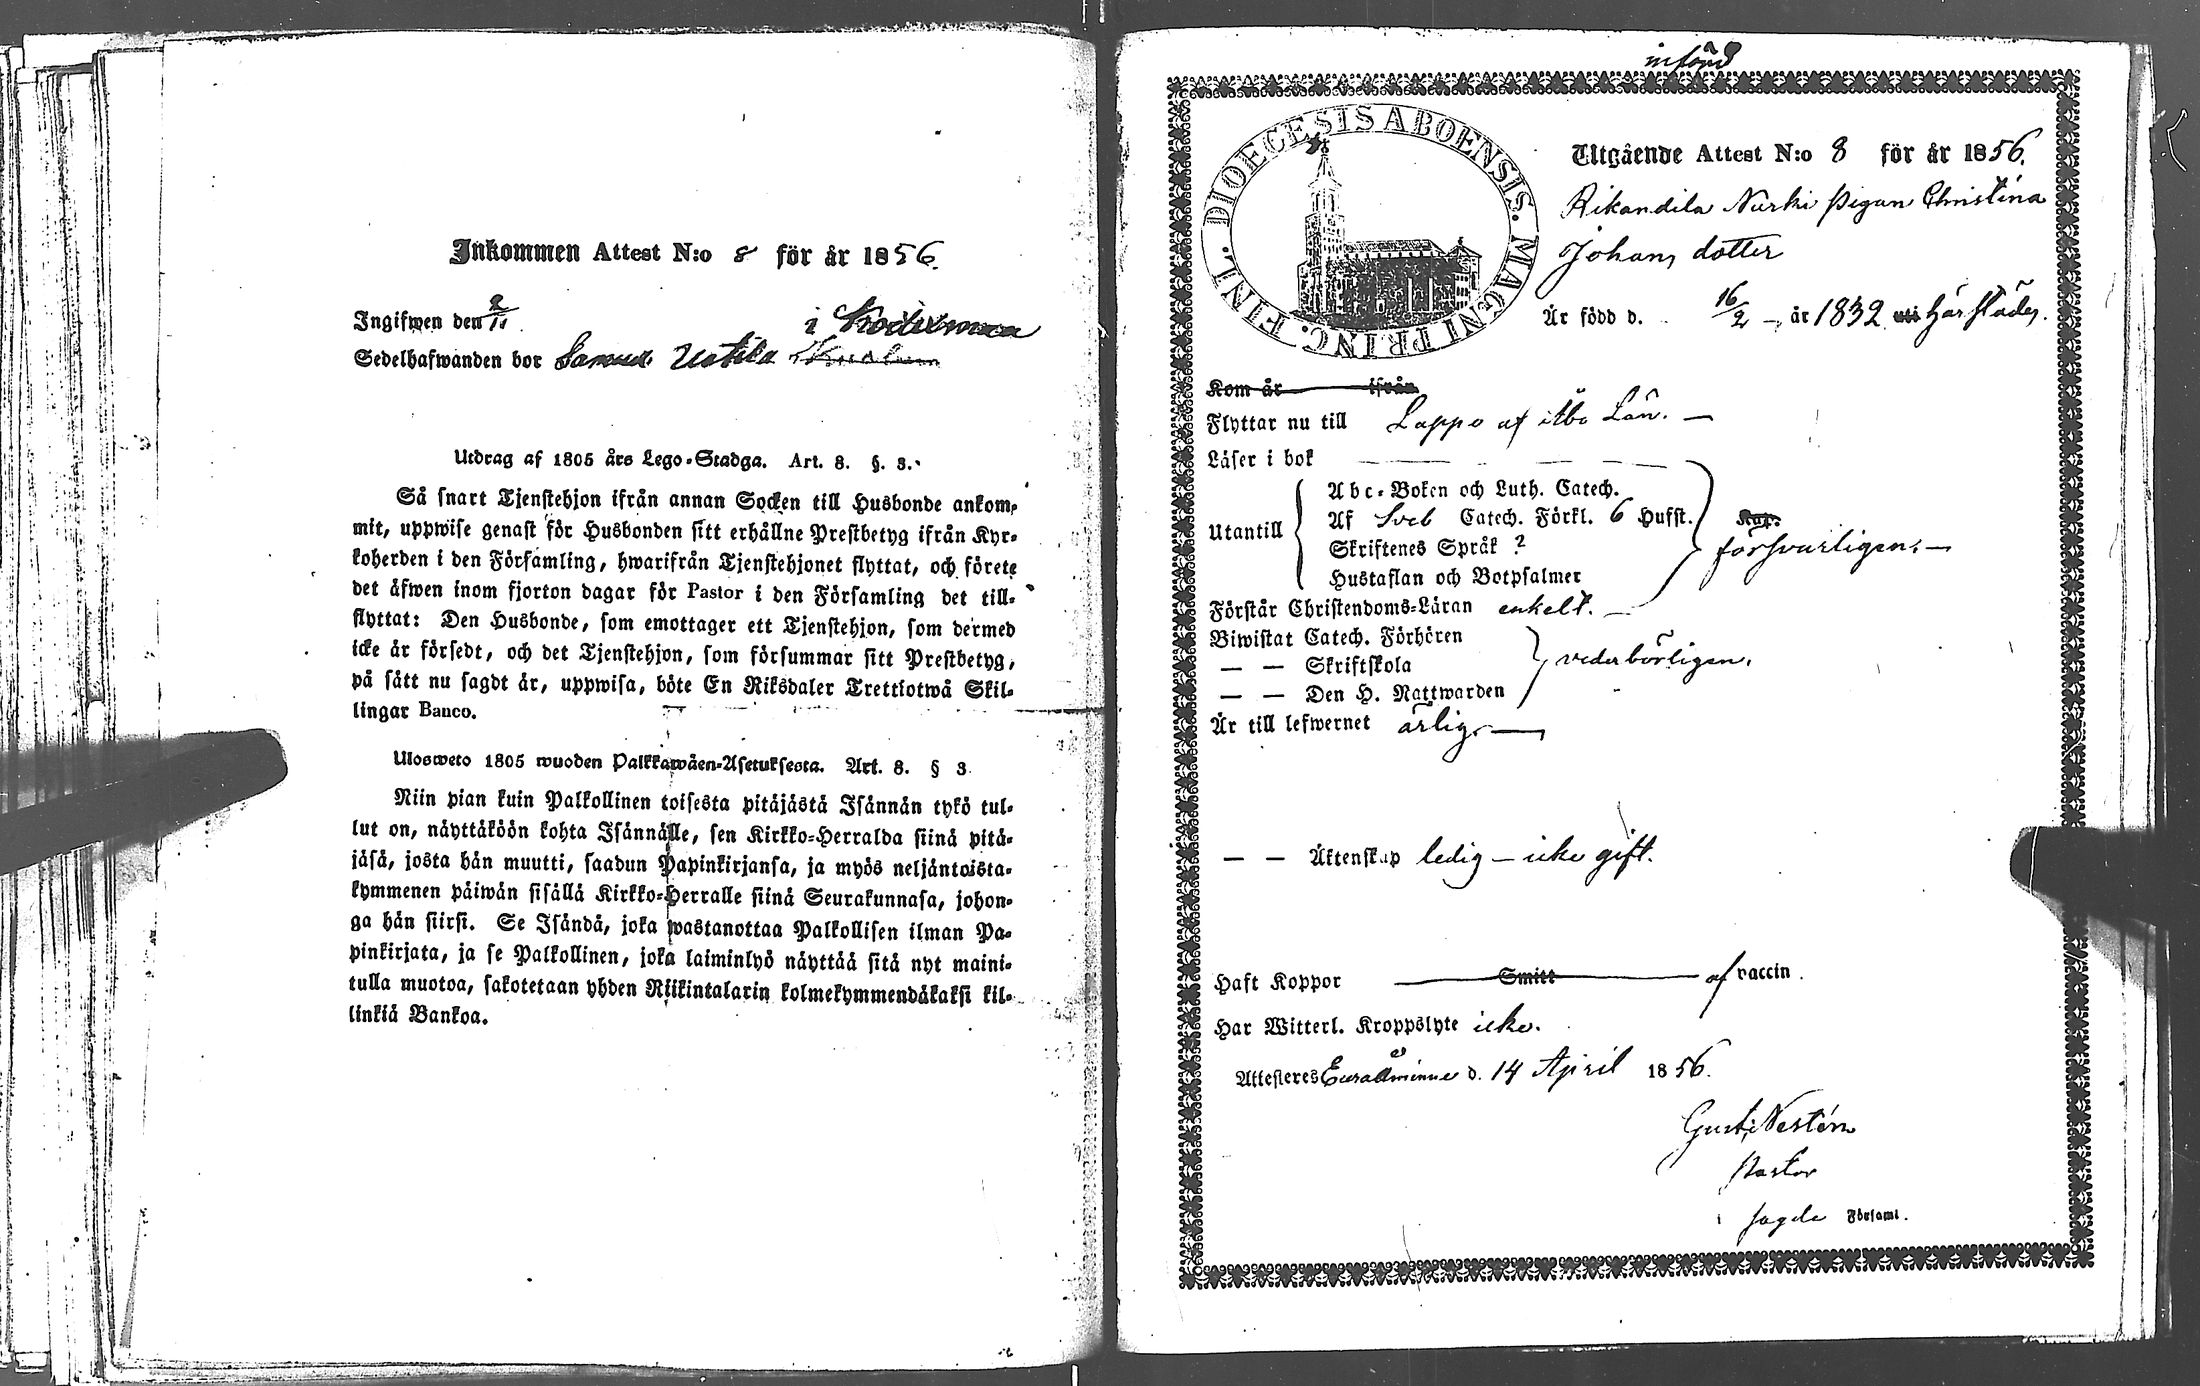 Inkommen Attest N:o 8 för år 1856.
Ingifwen den
i
Sedelhafwanden bor Samuel Uotila
Utdrag af 1805 års Lego-Stadga. Art. 8. §. 3.
Så snart Tjenstehjon ifrån annan Socken till Husbonde ankom-
mit, uppwise genast för Husbonden sitt erhållne Prestbetyg ifrån Kyr-
koherden i den Församling, hwarifrån Tjenstehjonet flyttat, och förete
det äfwen inom fjorton dagar för Pastor i den Församling det till-
flyttat: Den Husbonde, som emottager ett Tjenstehjon, som dermed
icke är försedt, och det Tjenstehjon, som försummar sitt Prestbetyg,
på sätt nu sagdt är, uppwisa, böte En Riksdaler Trettiotwå Skil-
lingar Banco.
Ulosweto 1805 wuoden Palkkawäen-Asetuksesta. Art. 8. § 3
Niin pian kuin Palkollinen toisesta pitäjästä Isännän tykö tul-
lut on, näyttäköön kohta Isännälle, sen Kirkko-Herralda siinä pitä-
jäsä, josta hän muutti, saadun Papinkirjansa, ja myös neljäntoista-
kymmenen päiwän sisällä Kirkko-Herralle siinä Seurakunnasa, johon-
ga hän siirsi. Se Isändä, joka wastanottaa Palkollisen ilman Pa-
pinkirjata, ja se Palkollinen, joka laiminlyö näyttää sitä nyt maini-
tulla muotoa, sakotetaan yhden Riikintalarin kolmekymmendäkaksi kil-
linkiä Bankoa.
införd
DIOECESIS ABOENSIS. MAGNI PRINC. FINL.
Utgående Attest N:o 8 för år 1856.
Rikandila Nurki Pigan Christina
Johans dotter
Är född d. 16/2 år 1832 uti härstädes.
Kom år ifrån
Flyttar nu till Lappo af Åbo Län.
Läser i bok
Abc-Boken och Luth. Catech.
Utantill
Af Sveb Catech. Förkl. 6 Hufst.
Skriftenes Språk ?
Hustaflan och Botpsalmer
försvarligen.
Förstår Christendoms-Läran enkelt.
Biwistat Catech. Förhören
— — Skriftskola
— — Den H. Nattwarden
vederbörligen.
Är till lefwernet ärlig.
— — Äktenskap ledig – icke gift.
Haft Koppor Smitt af vaccin.
Har Witterl. Kroppslyte icke.
Attesteres Euraåminne d. 14 April 1856.
Gust. Nestén
Pastor
i sagde Församl.